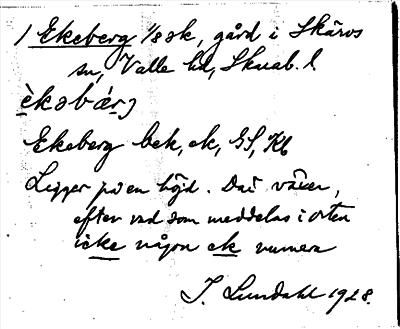 1 Ekeberg 1/8 ok, gård i Skärvs
sn, Valle hd, Skarab. l.
Ekeberg bek, ek, GS, Kb
Ligger på en höjd. Där växer,
efter vad som meddelas i orten
icke någon ek numera
I. Lundahl 1928.